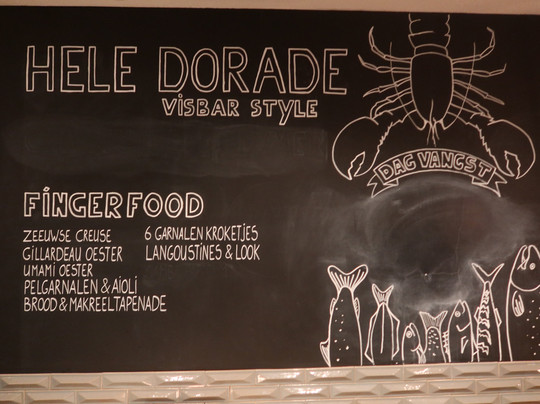 HELE DORADE
VISBAR STYLE
DAG VANGST
FINGERFOOD
ZEEUWSE CREUSE
GILLARDEAU OESTER
UMAMI OESTER
PELGARNALEN & AIOLI
BROOD & MAKREELTAPENADE
6 GARNALEN KROKETJES
LANGOUSTINES & LOOK